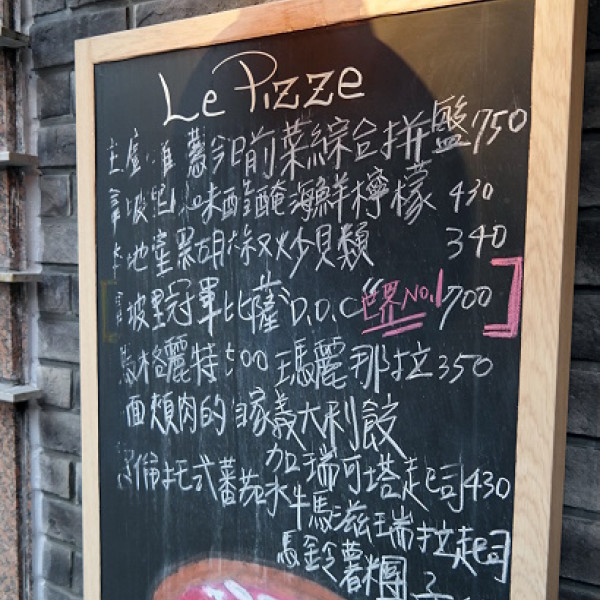 Le Pizze
主廚推薦今日前菜綜合拼盤 750
拿坡里風味醋醃海鮮檸檬 430
地窖黑胡椒炒貝類 340
拿坡里冠軍比薩"D.O.C" 世界No.1 700
馬格麗特500 瑪麗那拉350
面頰肉的自家義大利餃
加瑞可塔起司430
索倫托式蕃茄水牛馬滋瑞拉起司
馬鈴薯糰